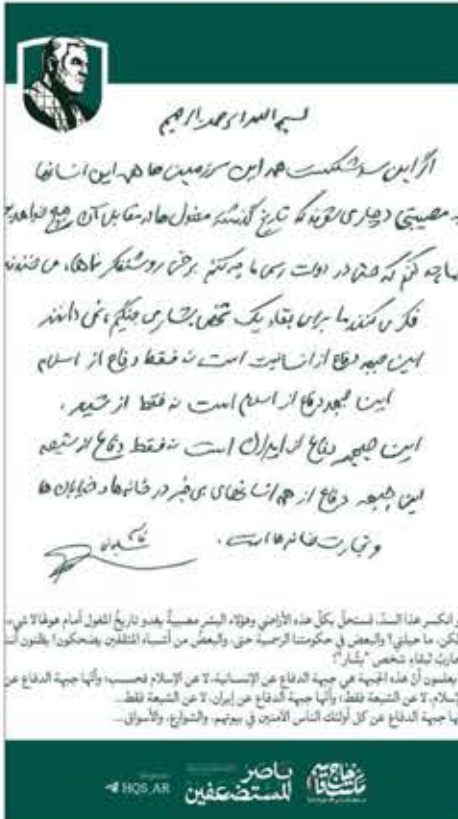 بسم الله الرحمن الرحیم
اگر این سد شکست همه این سرزمین‌ها همه این انسانها
به مصیبتی دچار می‌شوند که تاریخ گذشته مغول‌ها در مقابل آن هیچ خواهد
چه کنم که حتی در دولت رسمی ما چه کنم برخی روشنفکر نماها، می‌خندند
فکر می‌کنند ما برای بقاء یک شخص بشار می‌جنگیم، نمی‌دانند
این جبهه دفاع از انسانیت است نه فقط دفاع از اسلام
این جبهه دفاع از اسلام است نه فقط از شیعه،
این جبهه دفاع از ایران است نه فقط دفاع از شیعه
این جبهه دفاع از همه انسانهای بی‌خبر در خانه‌ها و خیابان‌ها
و تجارت‌خانه‌ها است.
و انكسر هذا السدّ، فستحلّ بكلّ هذه الأراضي وهؤلاء البشر مصيبةٌ يغدو تاريخُ المغول أمام هولها لا شيء
لكن، ما حيلتي؟ والبعض في حكومتنا الرسمية حتى، والبعضُ من أشباه المثقفين يضحكون! يظنون
نحارب لبقاء شخص "بشّار"؛
يعلمون أنّ هذه الجبهة هي جبهة الدفاع عن الإنسانية، لا عن الإسلام فحسب؛ وأنّها جبهة الدفاع عن
الإسلام، لا عن الشيعة فقط؛ وأنّها جبهة الدفاع عن إيران، لا عن الشيعة فقط..
أنّها جبهة الدفاع عن كل أولئك الناس الآمنين في بيوتهم، والشوارع، والأسواق...
HQS_AR
ناصر
المستضعفين
منهاج
مكتب قاسم